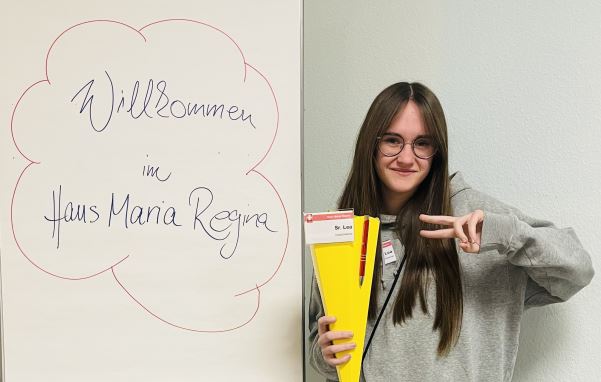 Willkommen
im
Haus Maria Regina
Sr. Lea